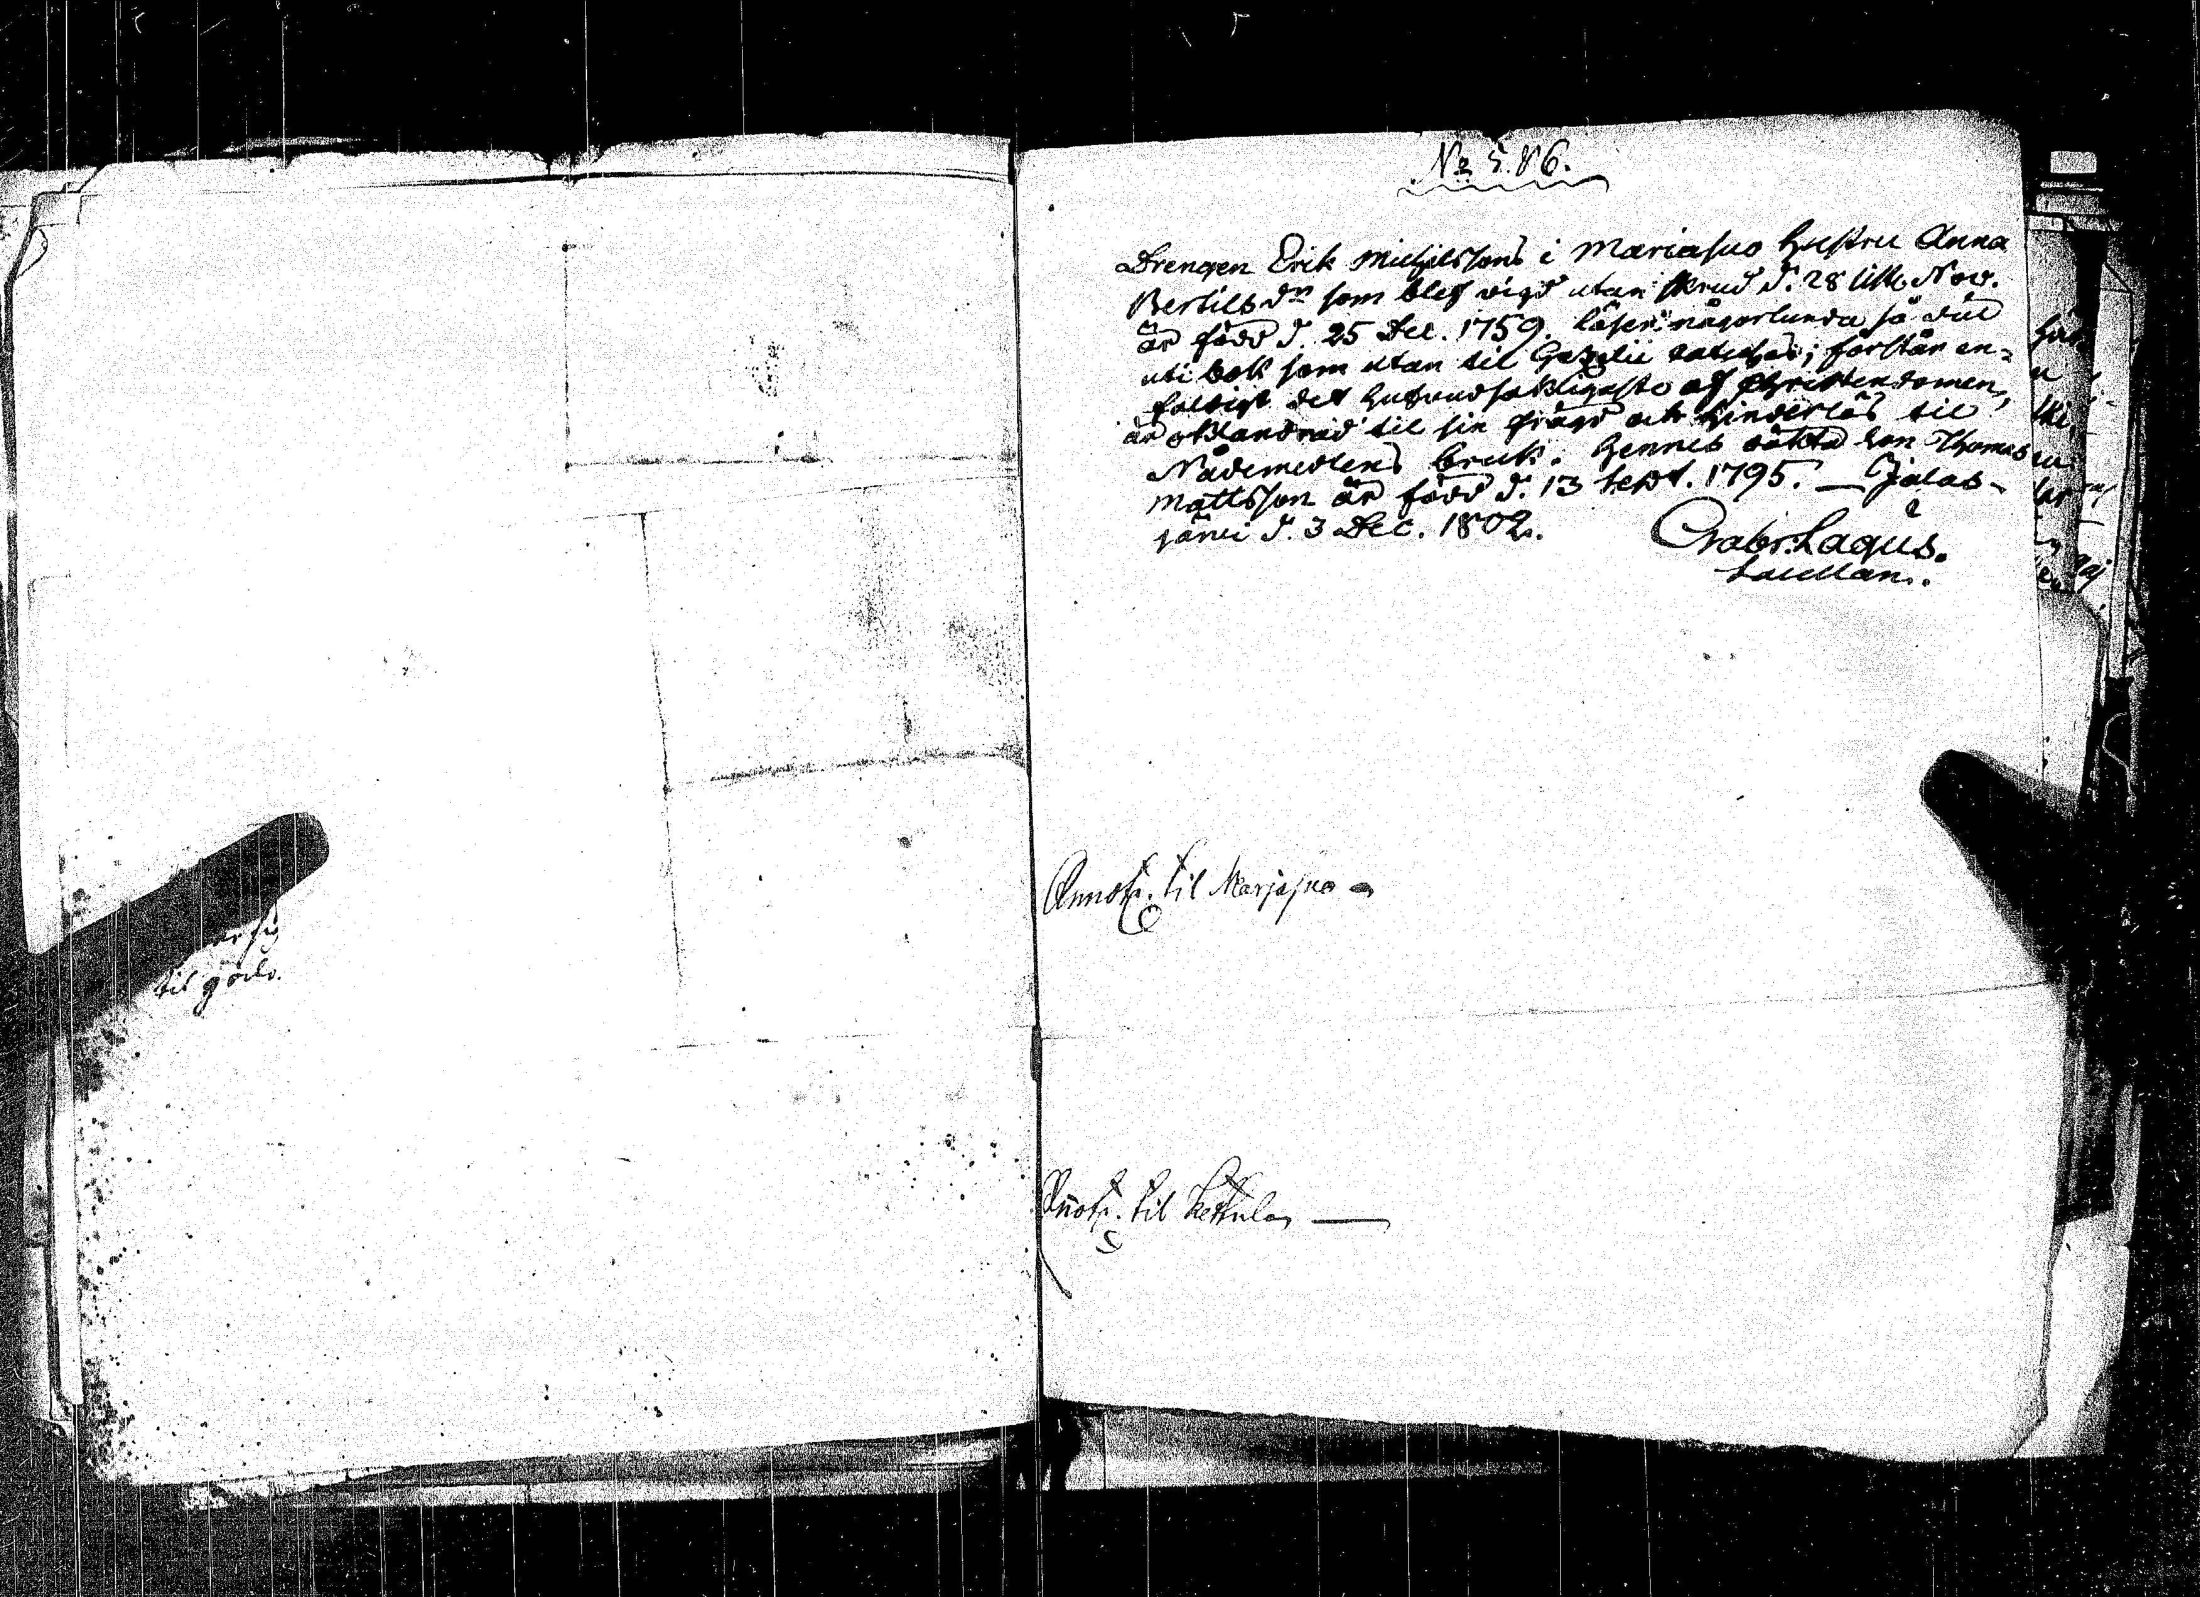 No 5.86.
Drengen Erik Michelssons i Mariasuo Hustru Anna
Bertilsdr som blef vigd utan skrud d. 28 sistl. Nov.
är född d. 25 Dec. 1759. läser någorlunda så väl
uti bok som utan til Gezelii cateches; förstår en-
faldigt det hufvudsakligaste af Christendomen,
är oklandrad til sin frägd och hinderlös til
Nådemedlens bruk. Hennes oäkta son Thomas
Mattsson är född d. 13 Sept. 1795. — Jalas-
järvi d. 3 Dec. 1802.
Gabr. Lagus.
Annot. til Marjasuo
til godo.
Annot. til